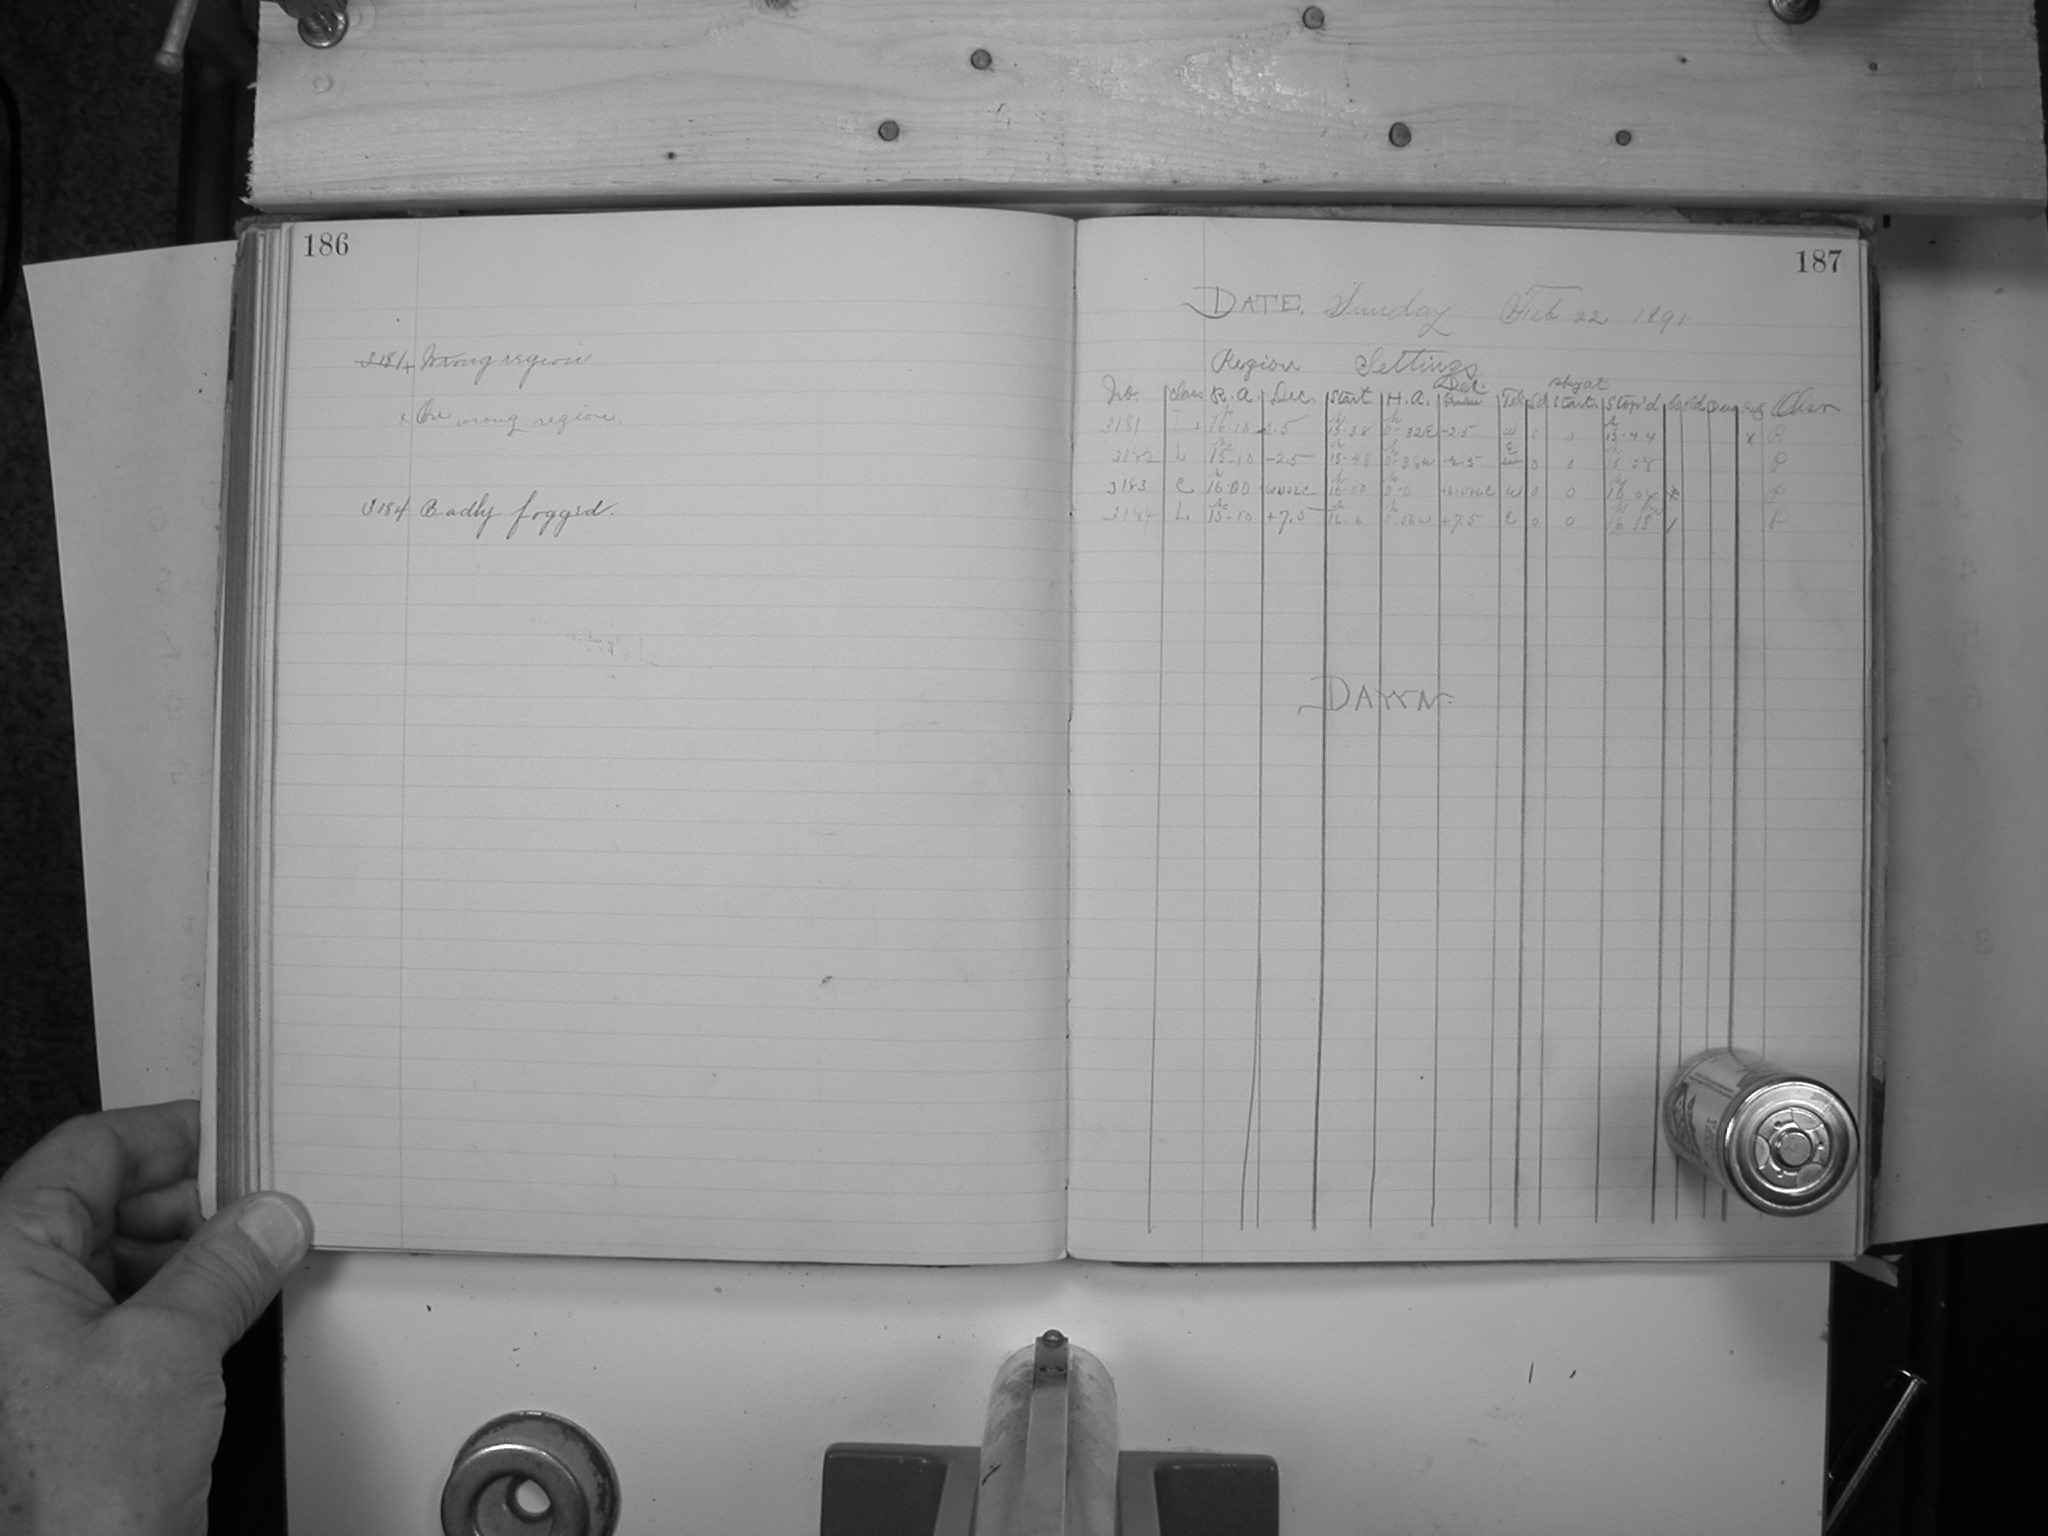 186
3181+ Wrong region
x One wrong region.
3184 Badly fogg'd.
187
DATE. Sunday Feb 22 1891.
Region Settings
No. Class R.A. Dec. Start H.A. Dec. Tel Start. Stop'd Obsr
3181 16-10 15-38 0-32E -2.5 w 0 0 15-44 x P
3182 L 15-10 -2.5 15-48 0-38w -2.5 E 0 0 15 58 P
3183 C 16-00 16-00 0-0 w 0 0 16 04 P
3184 L 15-10 +7.5 16-6 0-56w +7.5 E 0 0 16 18 P
DAWN.